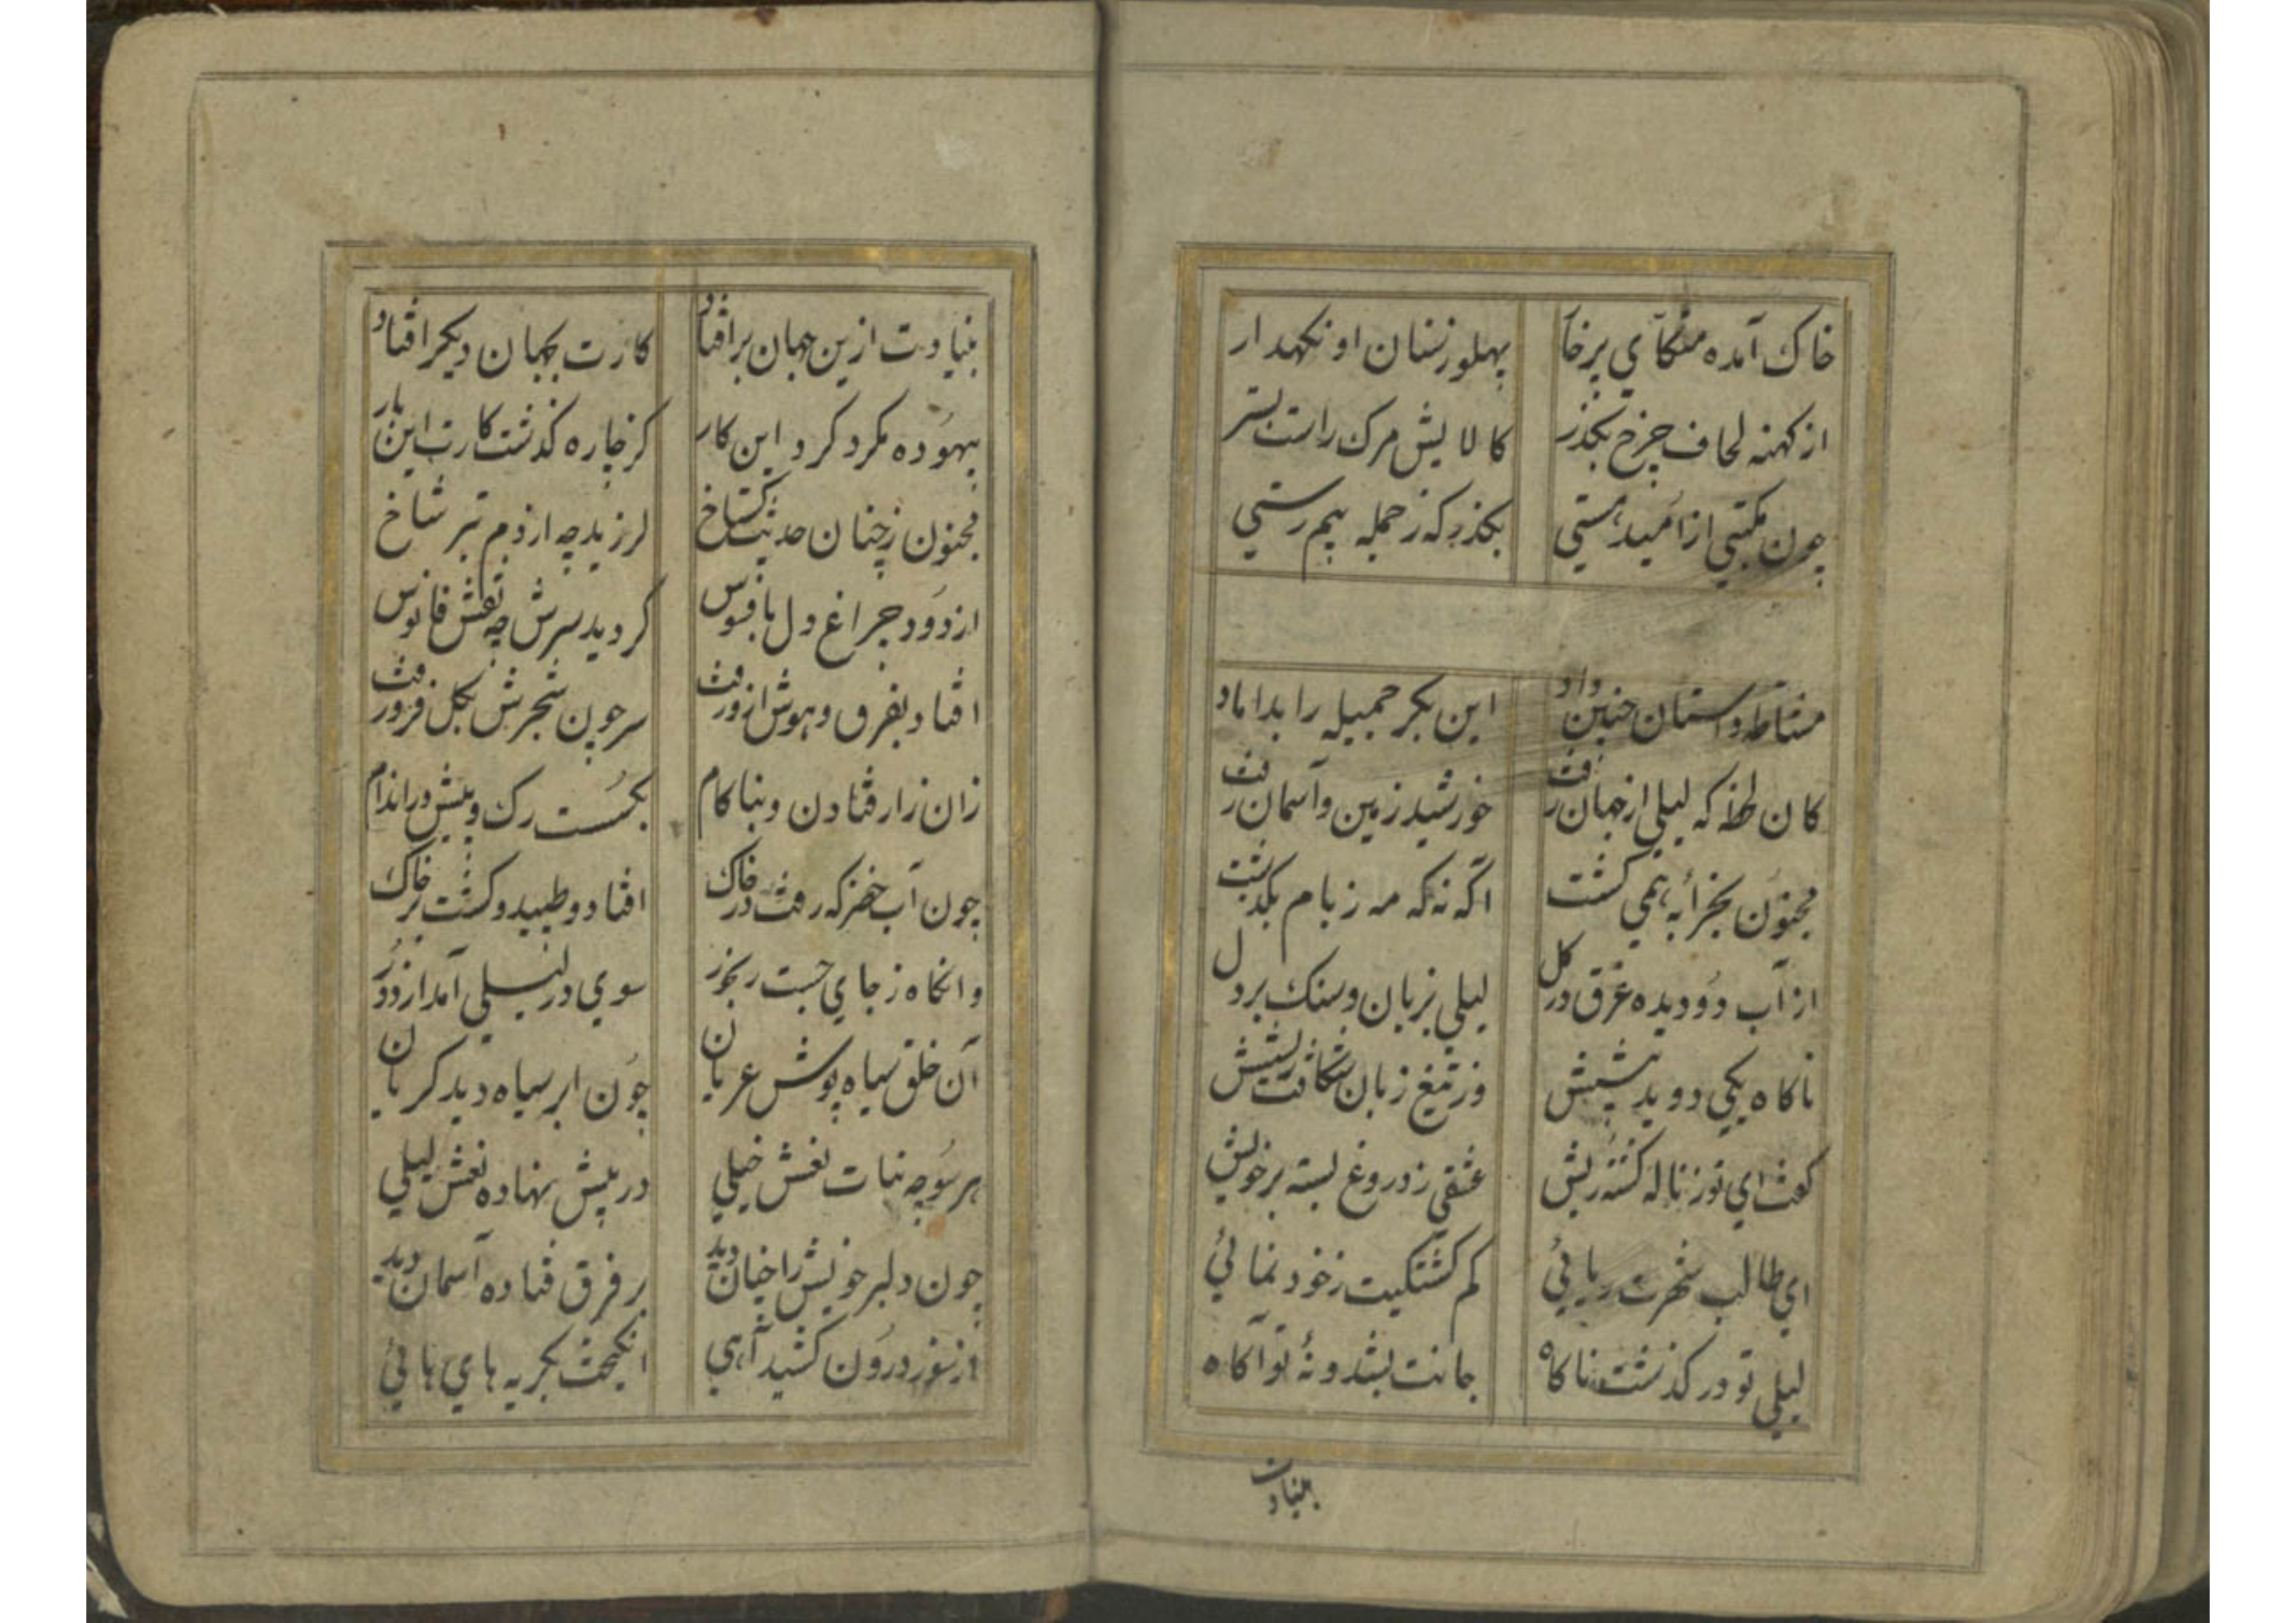 خاک آمده متکای پر خار پهلو ز سنان او نکهدار
از کهنه لحاف چرخ بکذر کالایش مرک راست بستر
چون مکتبی از امید هستی بکذر که ز جمله بیم رستی
مشاطه داستان چنین داد این بکر جمیله را بداماد
کان لحظه که لیلی از جهان رفت خورشید زمین و آسمان رفت
مجنون بخرابه همی کشت اکه نه که مه ز بام بکذشت
از آب دو دیده غرق در کل لیلی بزبان و سنک بر دل
ناکاه یکی دوید پیشش وز تیغ زبان شکافت ریشش
کفت ای تو ز ناله کشته ریش عشقی ز دروغ بسته بر خویش
ای طالب شهرت ریائی کم کشتکیت ز خود نمائی
لیلی تو در کذشت ناکاه جانت بشد و نهٔ تو آکاه
بنیادت
بنیادت ازین جهان بر افتاد کارت بجهان دیکر افتاد
بیهوده مکرد کرد این کار کز چاره کذشت کارت این بار
مجنون ز چنان حدیث کستاخ لرزید چه از دم تبر شاخ
از دود چراغ دل بافسوس کردید سرش چه نقش فانوس
افتاد بفرق و هوش ازو رفت سر چون شجرش بکل فرو رفت
زان زار فتادن و بناکام بکسست رک و پیش در اندام
چون آب خضر که رفت در خاک افتاد و طپید و کشت بر خاک
وانکاه ز جای جست رنجور سوی در لیلی آمد از دور
آن خلق سیاه پوش عریان چون ابر سیاه دید کریان
هر سو چه بنات نعش خیلی در پیش نهاده نعش لیلی
چون دلبر خویش را چنان دید بر فرق فتاده آسمان دید
از سوز درون کشید آهی انکیخت بکریه های هائی